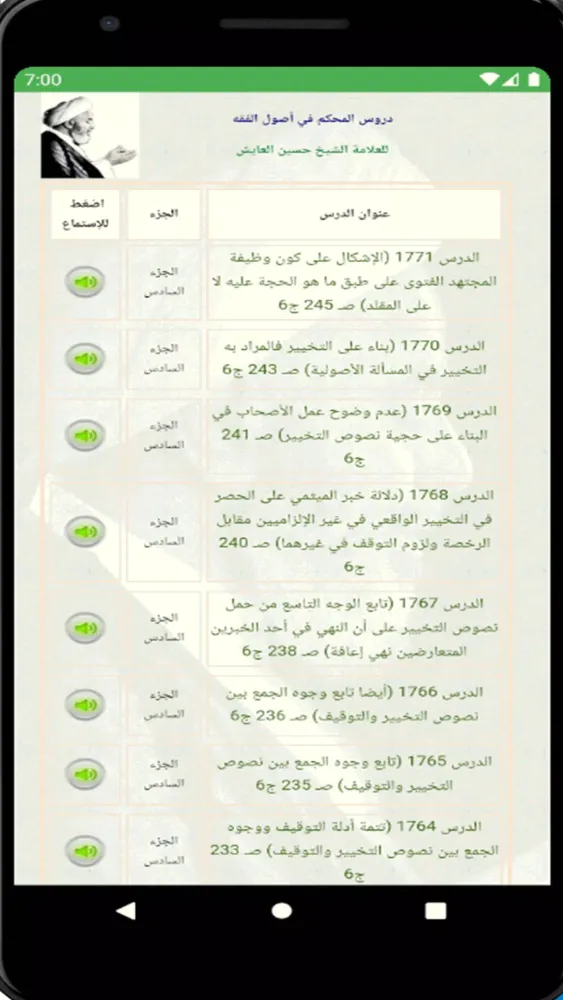 7:00
دروس المحكم في أصول الفقه
للعلامة الشيخ حسين العايش
عنوان الدرس
الجزء
اضغط
للإستماع
الدرس 1771 (الإشكال على كون وظيفة
المجتهد الفتوى على طبق ما هو الحجة عليه لا
على المقلد) صـ 245 ج6
الجزء
السادس
الدرس 1770 (بناء على التخيير فالمراد به
التخيير في المسألة الأصولية) صـ 243 ج6
الجزء
السادس
الدرس 1769 (عدم وضوح عمل الأصحاب في
البناء على حجية نصوص التخيير) صـ 241
ج6
الجزء
السادس
الدرس 1768 (دلالة خبر الميثمي على الحصر
في التخيير الواقعي في غير الإلزاميين مقابل
الرخصة ولزوم التوقف في غيرهما) صـ 240
ج6
الجزء
السادس
الدرس 1767 (تابع الوجه التاسع من حمل
نصوص التخيير على أن النهي في أحد الخبرين
المتعارضين نهي إعافة) صـ 238 ج6
الجزء
السادس
الدرس 1766 (أيضا تابع وجوه الجمع بين
نصوص التخيير والتوقيف) صـ 236 ج6
الجزء
السادس
الدرس 1765 (تابع وجوه الجمع بين نصوص
التخيير والتوقيف) صـ 235 ج6
الجزء
السادس
الدرس 1764 (تتمة أدلة التوقيف ووجوه
الجمع بين نصوص التخيير والتوقيف) صـ 233
ج6
الجزء
السادس